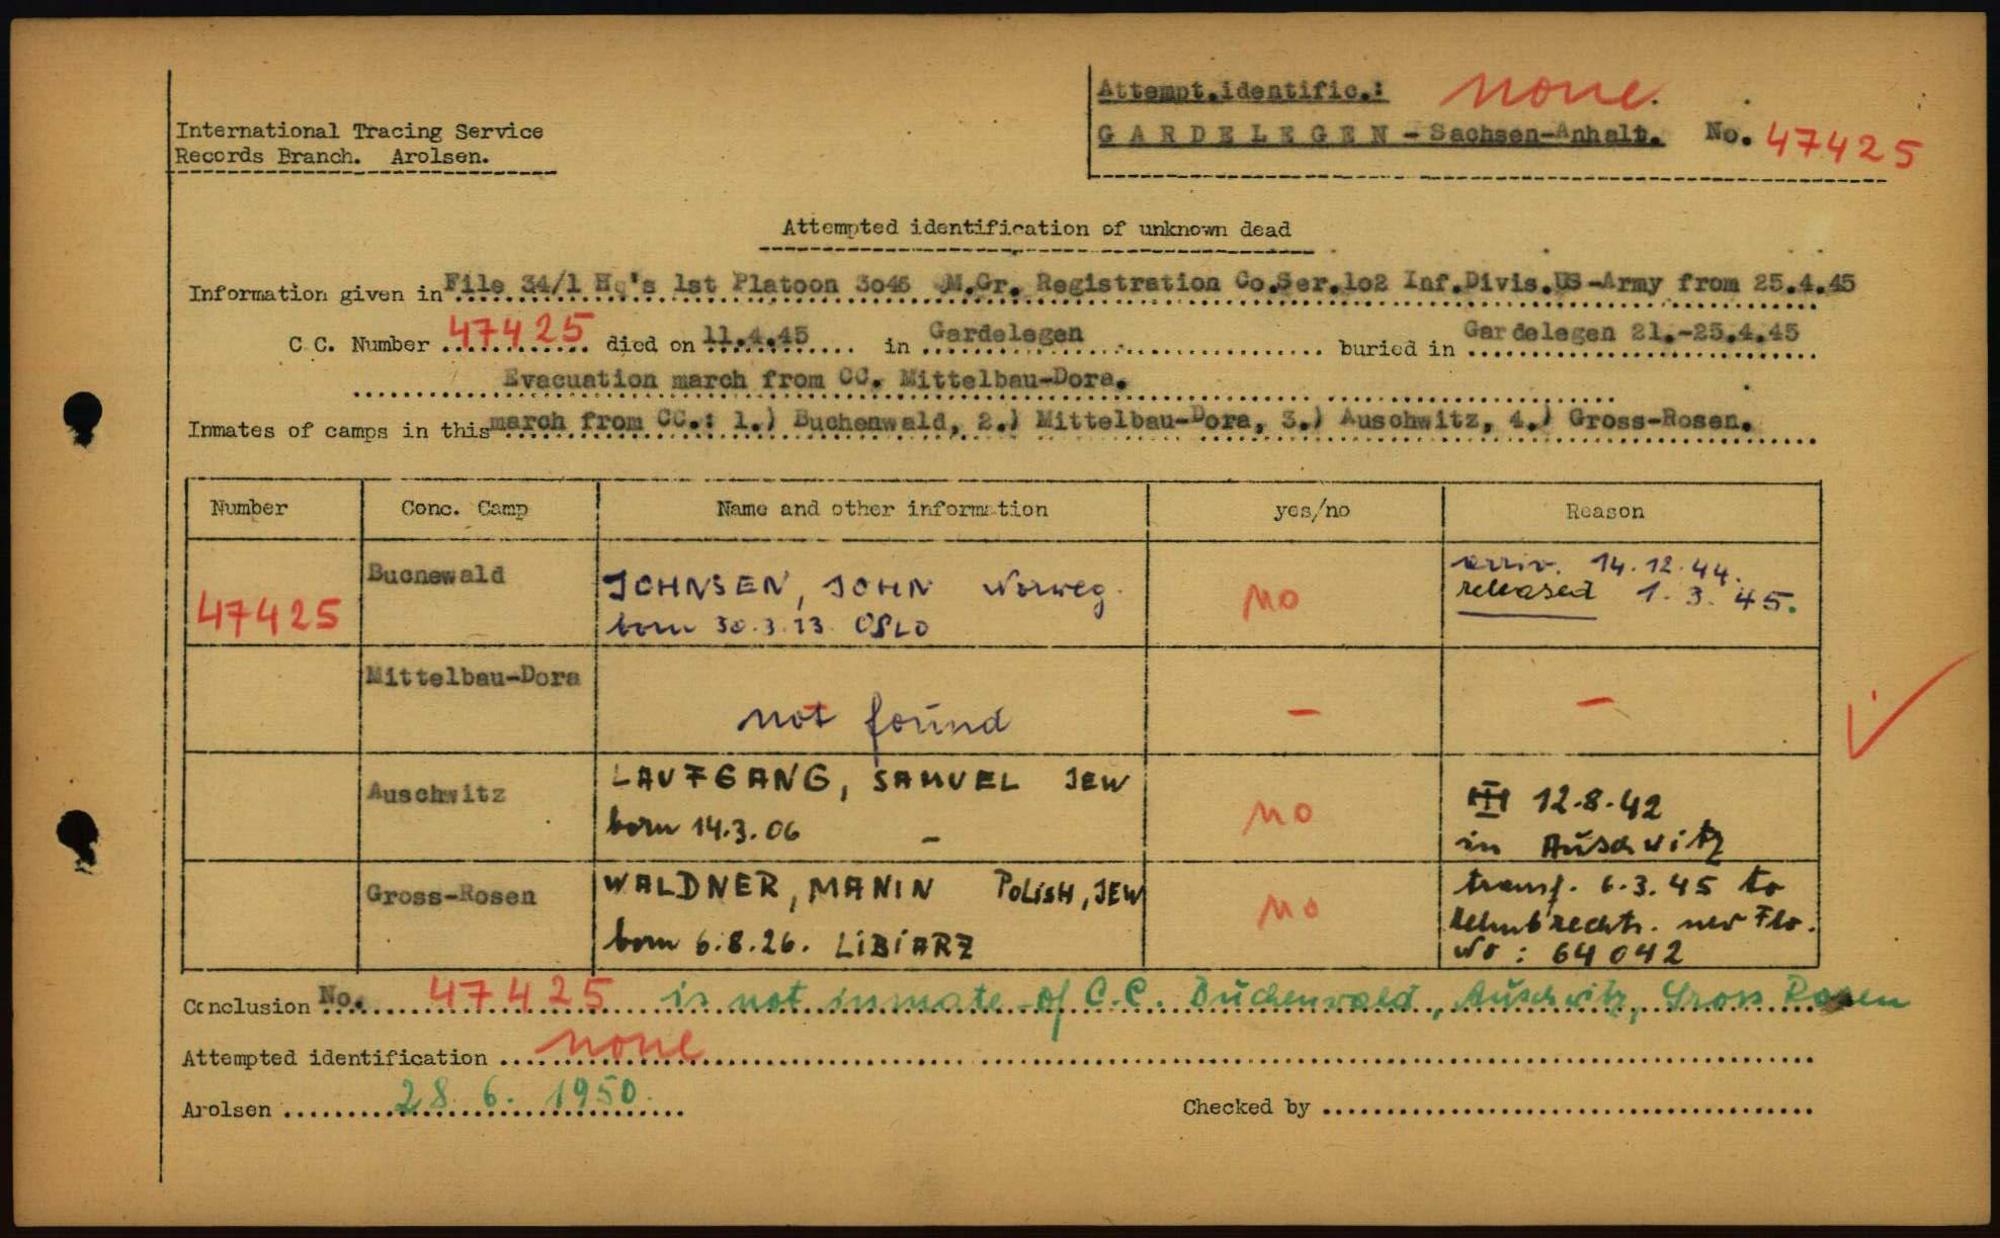 Attempt.identific.: none.
International Tracing Service
GARDELEGEN - Sachsen-Anhalt. No. 47425
Records Branch. Arolsen.
Attempted identification of unknown dead
Information given in File 34/1 Hq's 1st Platoon 3046 M.Gr. Registration Co.Ser.1o2 Inf.Divis.US-Army from 25.4.45
C.C. Number 47425 died on 11.4.45 in Gardelegen buried in Gardelegen 21.-25.4.45
Evacuation march from CC. Mittelbau-Dora.
Inmates of camps in this march from CC.: 1.) Buchenwald, 2.) Mittelbau-Dora, 3.) Auschwitz, 4.) Gross-Rosen.
Number Conc. Camp Name and other information yes/no Reason
47425 Bucnewald JOHNSEN, JOHN Norweg. no arriv. 14.12.44.
born 30.3.23 OSLO released 1.3.45.
Mittelbau-Dora not found - -
Auschwitz LAUFGANG, SAMUEL JEW no 12.8.42
born 14.3.06 - in Auschwitz
Gross-Rosen WALDNER, MANIN POLISH, JEW no transf. 6.3.45 to
Helmbrechts. new Flo.
born 6.8.26. LIBIARZ No: 64042
Conclusion No. 47425 is not inmate of C.C. Buchenwald, Auschwitz, Gross Rosen
Attempted identification none
Arolsen 28. 6. 1950. Checked by